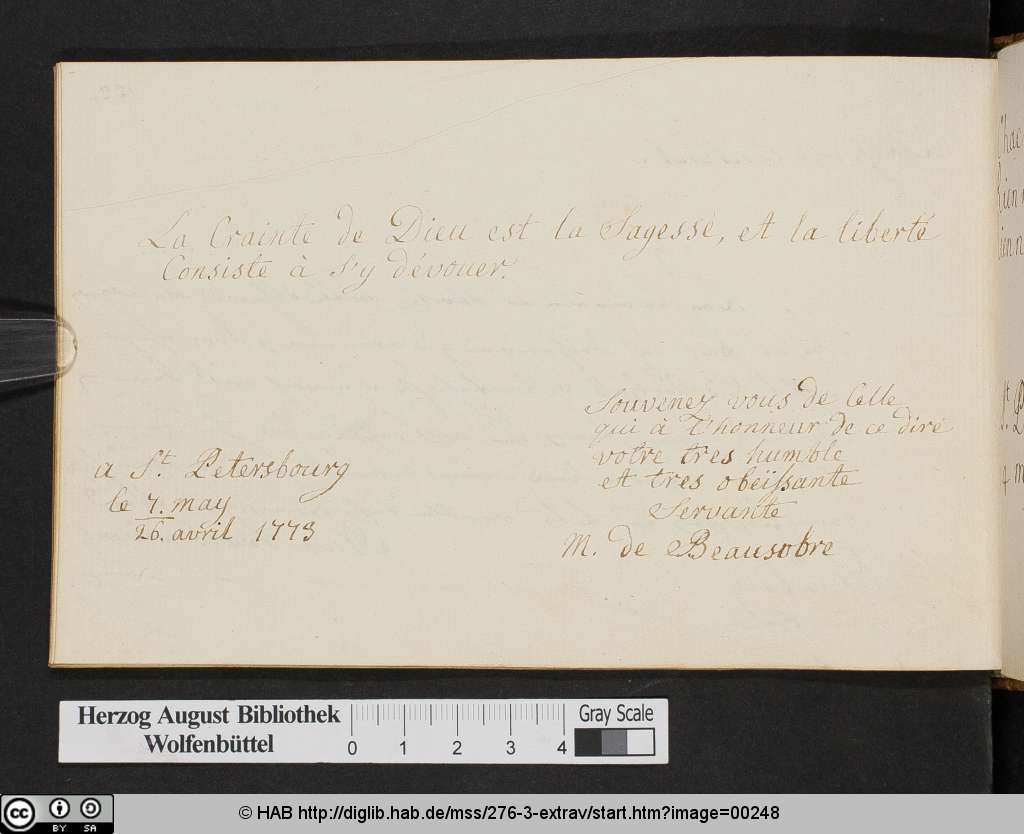 La Crainte de Dieu est la Sagesse, et la liberté
Consiste à s'y dévouer.
Souvenez vous de Celle
qui à l'honneur de ce dire
votre tres humble
et tres obeissante
Servante
M. de Beausobre
a St. Petersbourg
le 7. may
26. avril 1773
Herzog August Bibliothek
Wolfenbüttel
0 1 2 3 4
Gray Scale
cc BY SA
© HAB http://diglib.hab.de/mss/276-3-extrav/start.htm?image=00248